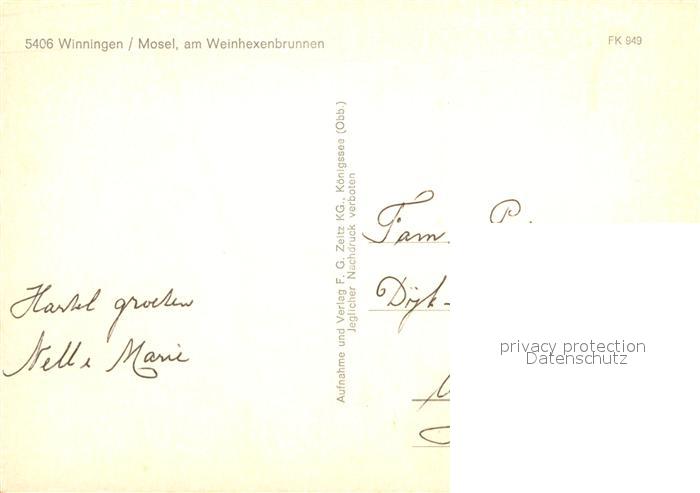 5406 Winningen / Mosel, am Weinhexenbrunnen
FK 949
Aufnahme und Verlag F. G. Zeitz KG., Königssee (Obb.)
Jeglicher Nachdruck verboten
Hartel groeten
Nell & Marie
Fam. P.
Dijk-
privacy protection
Datenschutz